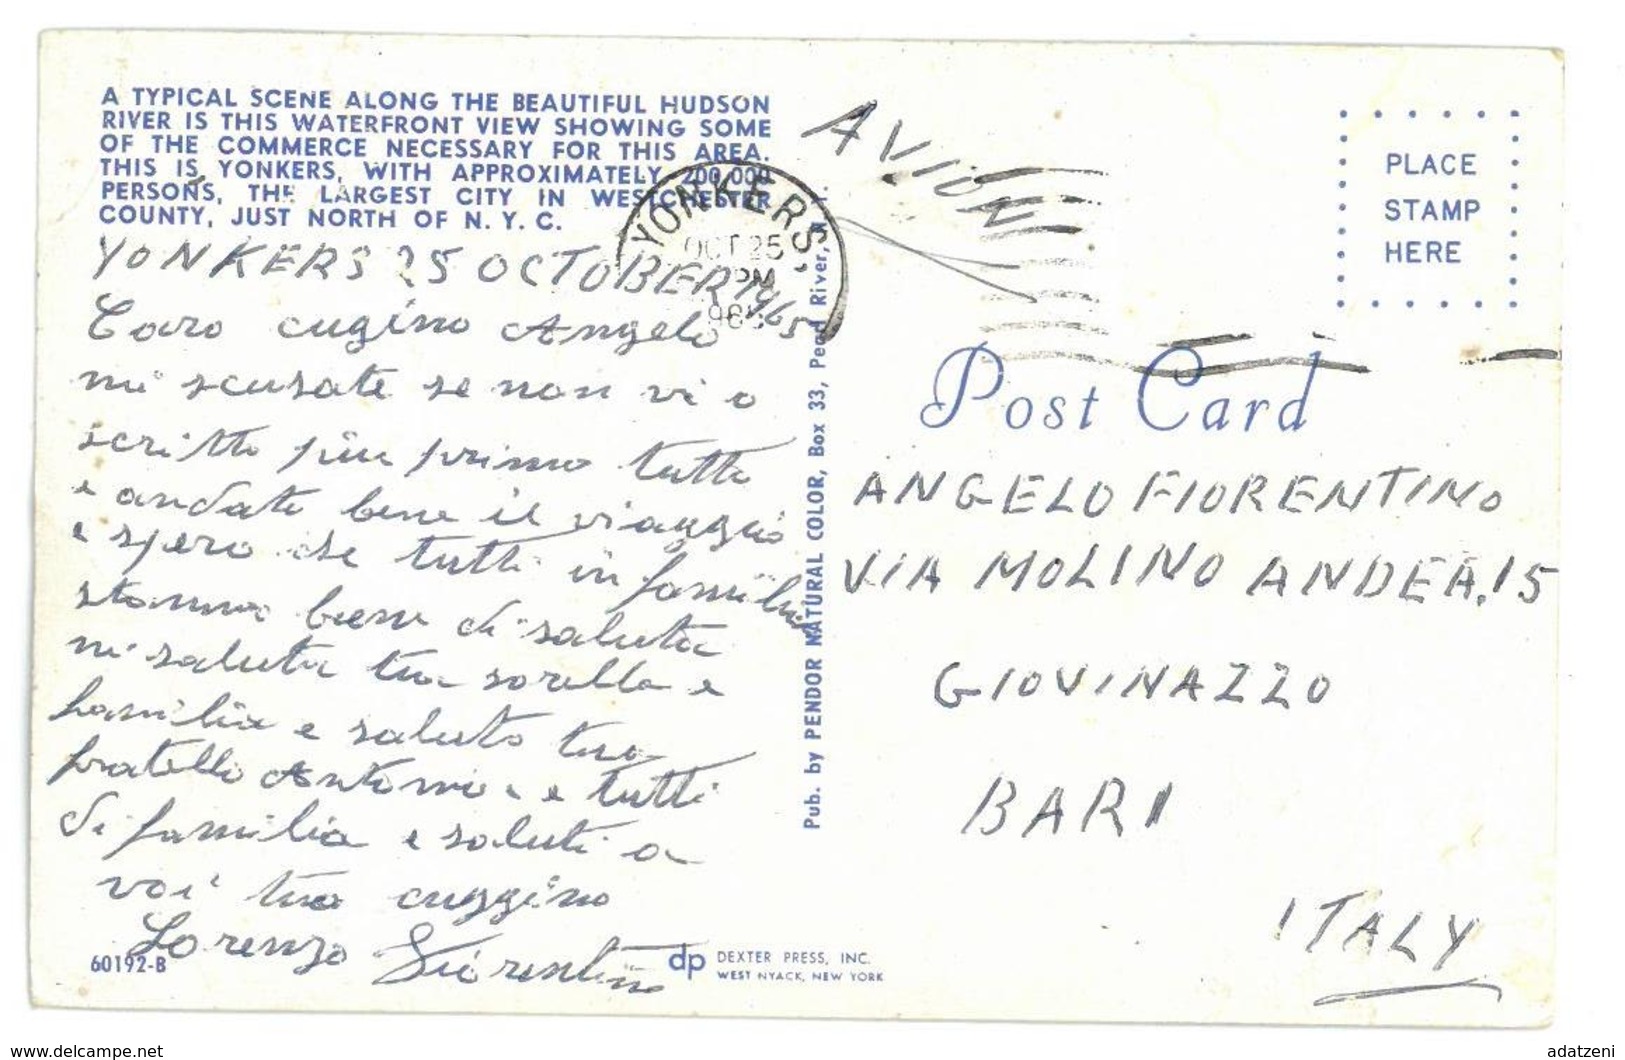 A TYPICAL SCENE ALONG THE BEAUTIFUL HUDSON
RIVER IS THIS WATERFRONT VIEW SHOWING SOME
OF THE COMMERCE NECESSARY FOR THIS AREA.
THIS IS YONKERS, WITH APPROXIMATELY 200,000
PERSONS, THE LARGEST CITY IN WESTCHESTER
COUNTY, JUST NORTH OF N. Y. C.
YONKERS 25 OCTOBER 1965
Caro cugino Angelo
mi scusate se non vi o
scritto piu primo tutto
e andato bene il viaggio
e spero che tutti in familia
stanno bene di saluta
mi saluta tua sorella e
familia e saluto tuo
fratello Antonio e tutti
di familia e saluti a
voi tuo cuggino
Lorenzo Fiorentino
60192-B
dp DEXTER PRESS, INC.
WEST NYACK, NEW YORK
Pub. by PENDOR NATURAL COLOR, Box 33, Pearl River, N.
YONKERS,
OCT 25
PM
AVION
PLACE
STAMP
HERE
Post Card
ANGELO FIORENTINO
VIA MOLINO ANDEA, 15
GIOVINAZZO
BARI
ITALY
www.delcampe.net
adatzeni